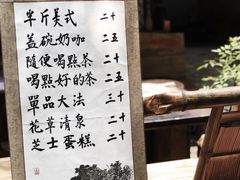 半斤美式 二十
盖碗奶咖 二五
隨便喝點茶 二十
喝點好的茶 二五
單品大法 三十
花草清泉 二十
芝士蛋糕 二十